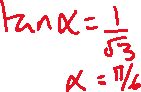 tanα = 1/√3
α = π/6